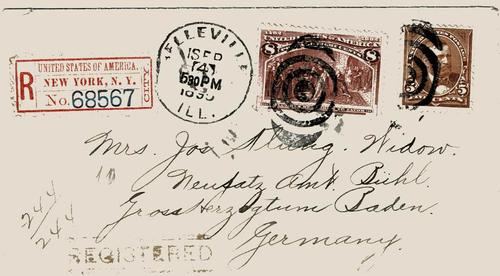 UNITED STATES OF AMERICA.
R NEW YORK, N. Y. CITY
No. 68567
BELLEVILLE
SEP
4
530PM
1895
ILL.
8 8
5 5
Mrs. Jos. Widow.
10
Neusatz Amt. Bühl.
Grossherzogtum Baden.
Germany.
244
244
REGISTERED